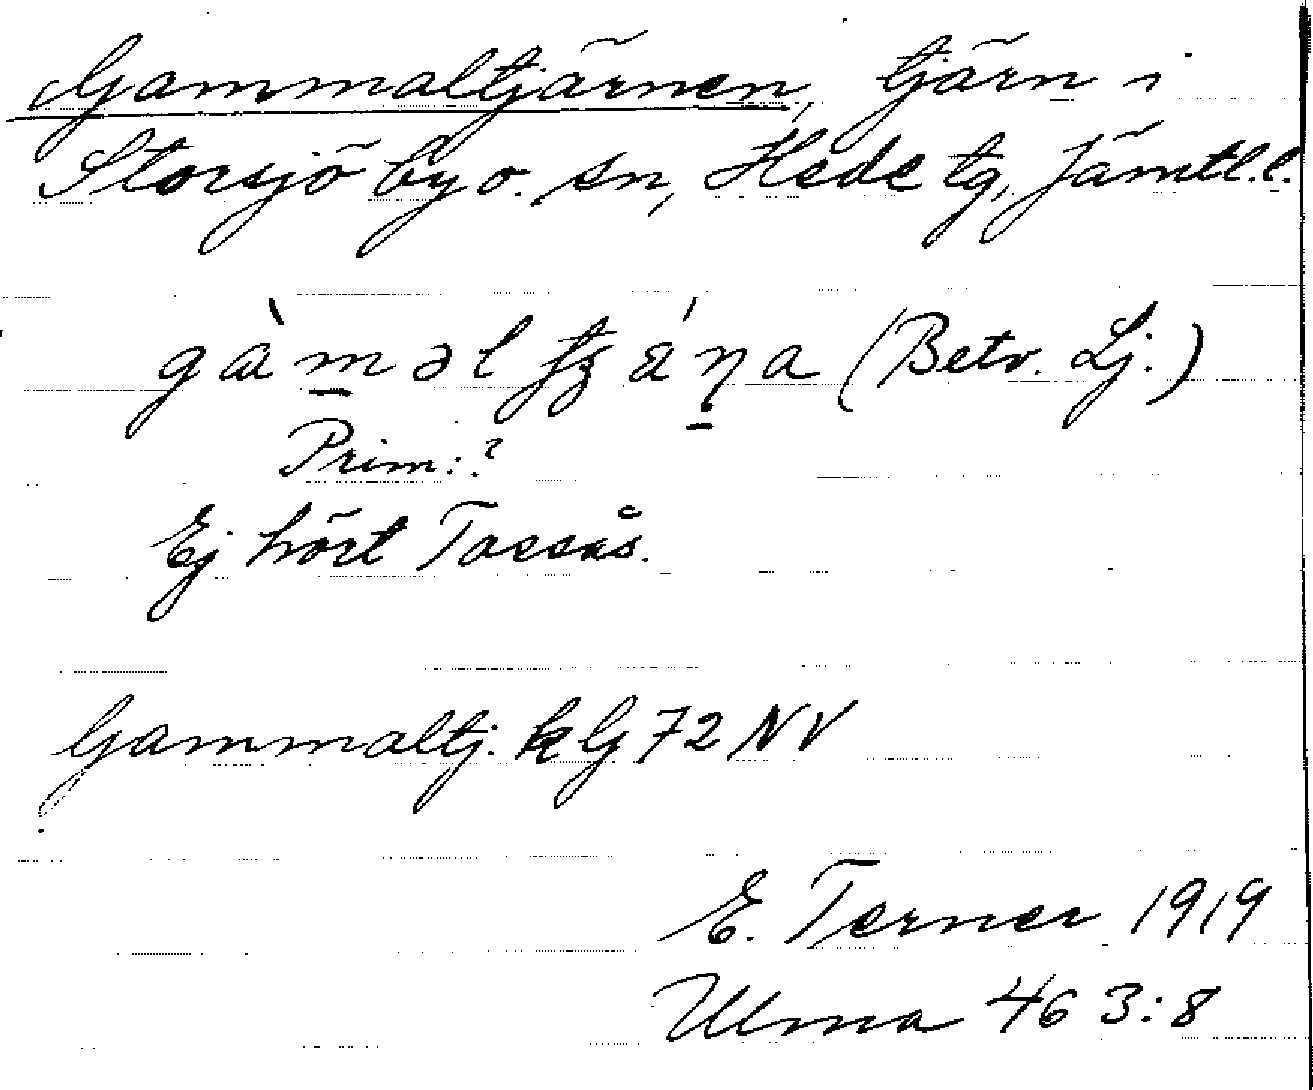 Gammaltjärnen, tjärn i
Storsjö by o. sn, Hede tg, Jämtl.l.
(Betv. Lj.)
Prim: ?
Ej hört Tossås.
Gammaltj. k G 72 NV
E. Terner 1919
Ulma 46 3:8